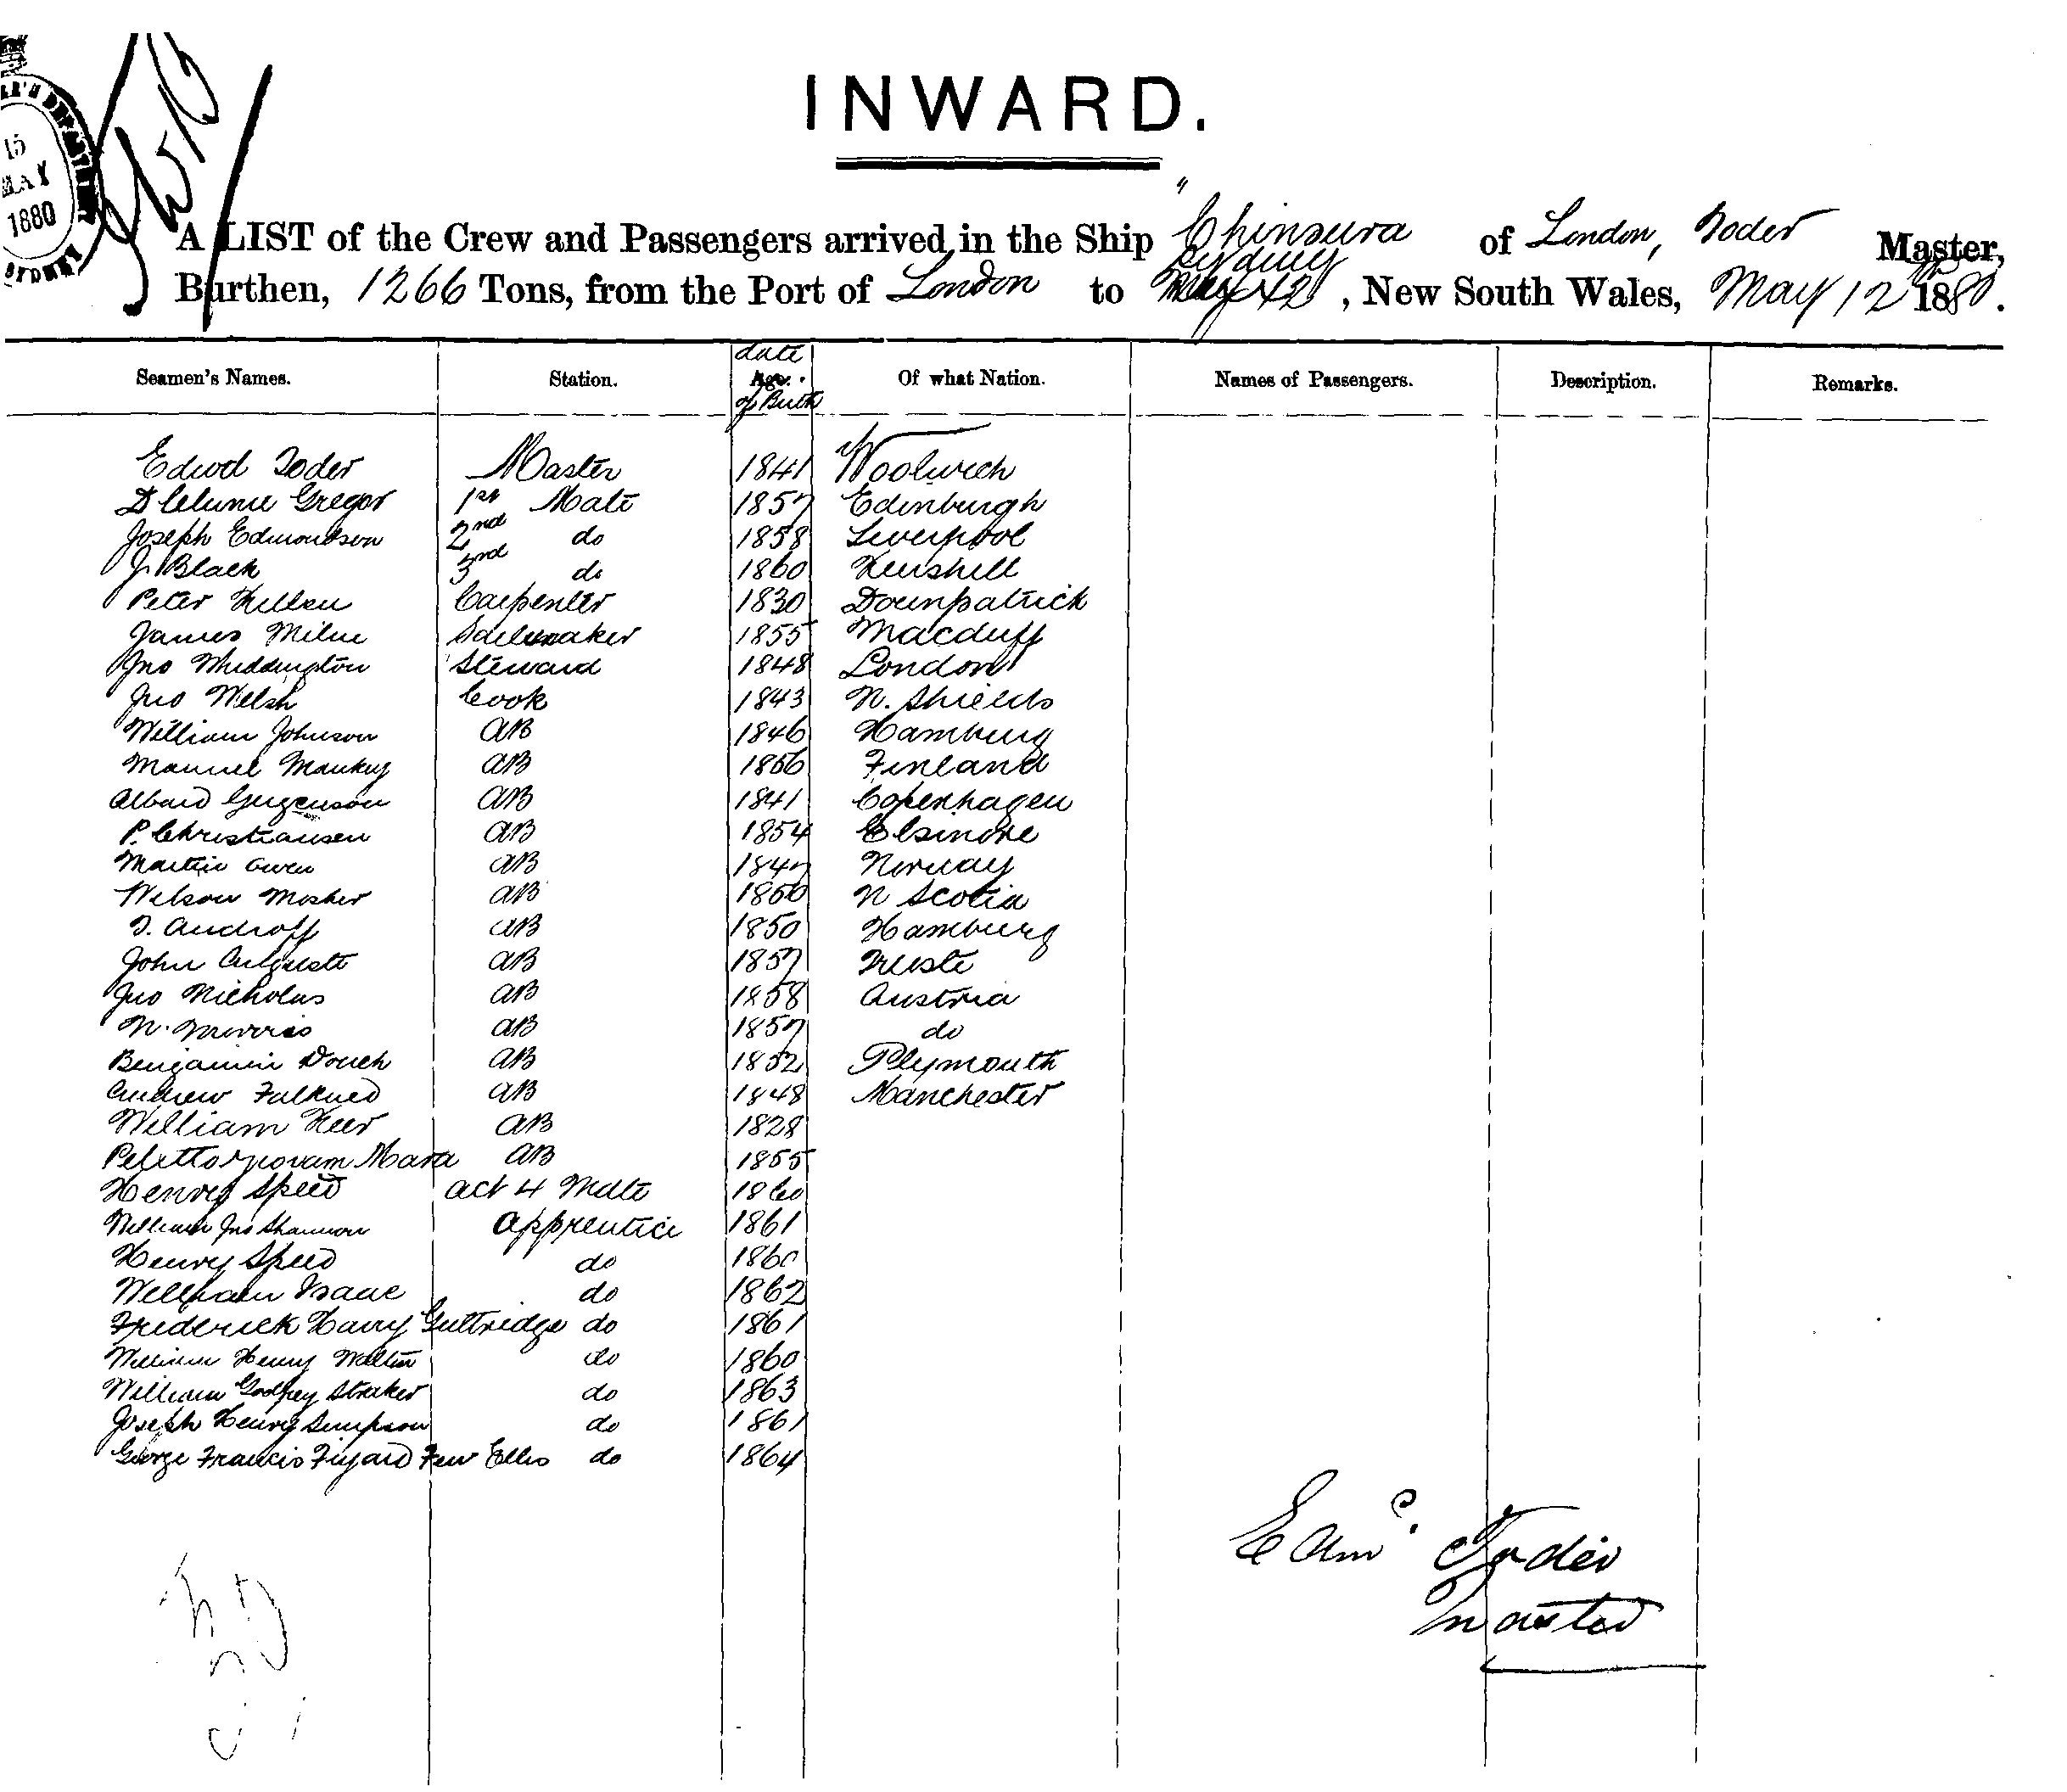 15
MAY
1880
SYDNEY
INWARD.
A LIST of the Crew and Passengers arrived in the Ship "Chinsura of London, Toder Master,
Burthen, 1266 Tons, from the Port of London to Sydney, New South Wales, May 12th 1880.
Seamen's Names. Station. date Age. of Birth Of what Nation. Names of Passengers. Description. Remarks.
Edwd Toder Master 1841 Woolwich
Gregor 1st Mate 1857 Edinburgh
Joseph Edmondson 2nd do 1858 Liverpool
J. Black 3rd do 1860
Peter Killen Carpenter 1830 Dounpatrick
James Milne Sailmaker 1855 Macduff
Jno Whiddington Steward 1848 London
Jno Welsh Cook 1843 N. Shields
William Johnson AB 1846 Hamburg
Manuel AB 1856 Finland
AB 1841 Copenhagen
P. Christiansen AB 1854 Elsinore
Martin Owen AB 1847 Norway
Wilson Mosher AB 1850 N Scotia
T. Androff AB 1850 Hamburg
John AB 1857 Trieste
Jno Nicholas AB 1858 Austria
N. Morris AB 1857 do
Benjamin Douch AB 1852 Plymouth
Andrew AB 1848 Manchester
William Keer AB 1828
Mara AB 1855
Henry Speed act 4 Mate 1860
William Jno Shannon apprentice 1861
Henry Speed do 1860
William Isaac do 1862
Frederick Harry Guttridge do 1861
William Henry Walton do 1860
William Godfrey Straker do 1863
Joseph Henry Simpson do 1861
George Francis Few Ellis do 1864
Toder
Master